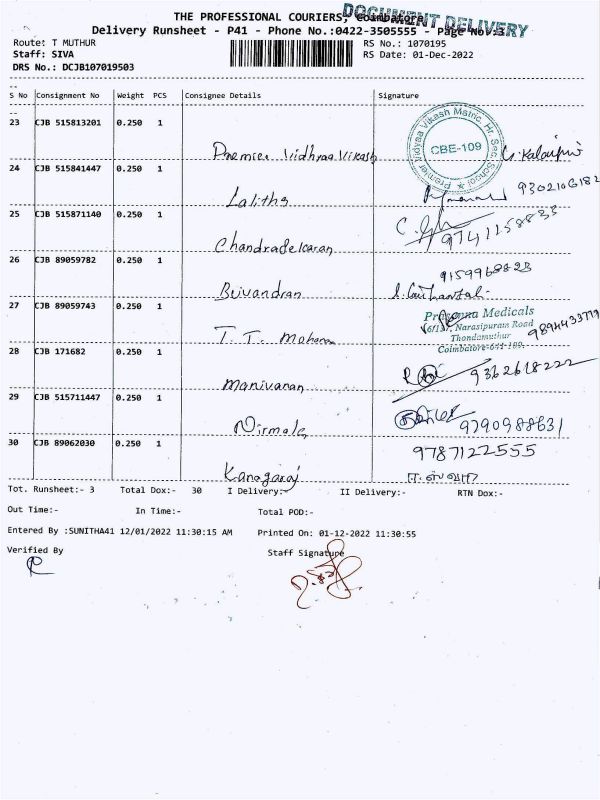 THE PROFESSIONAL COURIERS, Coimbatore
DOCUMENT DELIVERY
Delivery Runsheet - P41 - Phone No.:0422-3505555 - Page No.:3
Route: T MUTHUR
RS No.: 1070195
Staff: SIVA
RS Date: 01-Dec-2022
DRS No.: DCJB107019503
S No Consignment No Weight PCS Consignee Details Signature
23 CJB 515813201 0.250 1
Premier Vidhyaa Vikash
Premier Vidyaa Vikash Matric. Hr. Sec. School
CBE-109
24 CJB 515841447 0.250 1
Lalitha 9302106182
25 CJB 515871140 0.250 1
Chandrasekaran 9741158835
26 CJB 89059782 0.250 1
9159968823
27 CJB 89059743 0.250 1
T. T. Mohanan
Prasanna Medicals
6/137, Narasipuram Road
Thondamuthur
Coimbatore-641 109.
9894433719
28 CJB 171682 0.250 1
Manivanan 9362618222
29 CJB 515711447 0.250 1
Nirmala 9790988631
30 CJB 89062030 0.250 1
9787122555
Kanagaraj
Tot. Runsheet:- 3 Total Dox:- 30 I Delivery:- II Delivery:- RTN Dox:-
Out Time:- In Time:- Total POD:-
Entered By :SUNITHA41 12/01/2022 11:30:15 AM Printed On: 01-12-2022 11:30:55
Verified By Staff Signature